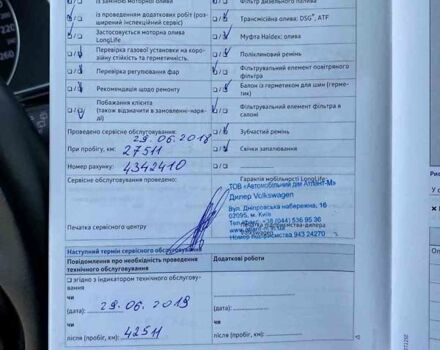 із заміною моторної оливи
із проведенням додаткових робіт (роз-
ширений інспекційний сервіс)
Застосовується моторна олива
LongLife
Перевірка газової установки на коро-
зійну стійкість та герметичність.
Перевірка регулювання фар
Рекомендація щодо ремонту
Побажання клієнта
(також відзначити в замовленні-наря-
ді)
Фільтр дизельного палива
Трансмісійна олива: DSG®, ATF
Муфта Haldex: олива
Поліклиновий ремінь
Фільтрувальний елемент повітряного
фільтра
Балон із герметиком для шин (герме-
тик)
Фільтрувальний елемент фільтра в
салоні
Зубчастий ремінь
Свічки запалювання
Проведено сервісне обслуговування:
29.06.2018
При пробігу, км: 27511
Номер рахунку: 4342410
Сервісне обслуговування проведено:
Гарантія мобільності LongLife:
ТОВ «Автомобільний дім Атлант-М»
Дилер Volkswagen
Вул. Дніпровська набережна, 16
02095, м. Київ
Телефон: +38 (044) 536 95 36
Номер підприємства 943 24270
Печатка сервісного центру
підприємства-дилера
Наступний термін сервісного обслуговування
Повідомлення про необхідність проведення
технічного обслуговування
Додаткові роботи
згідно з індикатором технічного обслуговуван-
ня
чи
(дата): 29.06.2019
чи
після (пробіг, км): 42511
(дата):
чи
після (пробіг, км):
220
260